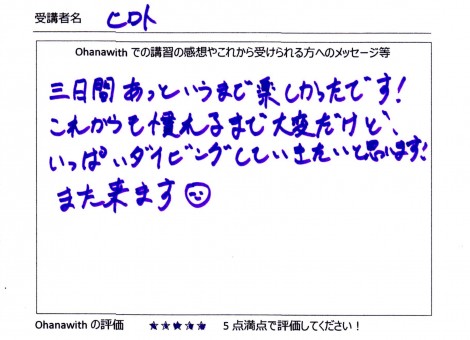 受講者名 ヒロト
Ohanawith での講習の感想やこれから受けられる方へのメッセージ等
三日間あっというまで楽しかったです!
これからも慣れるまで大変だけど、
いっぱいダイビングしていきたいと思います!
また来ます
Ohanawith の評価 ★★★★★ 5点満点で評価してください!